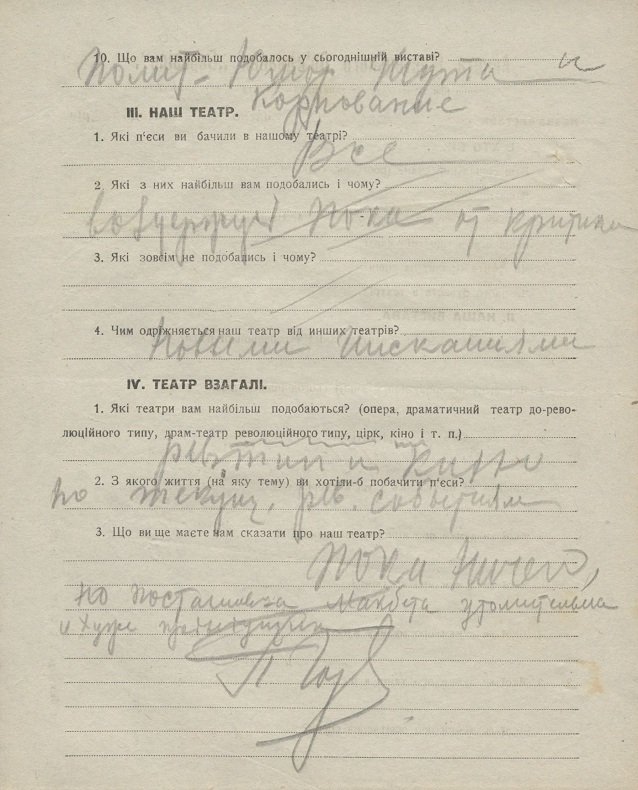 10. Що вам найбільш подобалось у сьогоднішній виставі?
Полит- Юмор Шута и
III. НАШ ТЕАТР.
1. Які п'єси ви бачили в нашому театрі?
Все
2. Які з них найбільш вам подобались і чому?
пока от критики
3. Які зовсім не подобались і чому?
4. Чим одріжняється наш театр від инших театрів?
Новыми
IV. ТЕАТР ВЗАГАЛІ.
1. Які театри вам найбільш подобаються? (опера, драматичний театр до-рево-
люційного типу, драм-театр революційного типу, цірк, кіно і т. п.)
рев тип и Кино
2. З якого життя (на яку тему) ви хотіли-б побачити п'єси?
по текущ. рев. событиям
3. Що ви ще маєте нам сказати про наш театр?
Пока ничего,
но постановка Макбета утомительна
и хуже